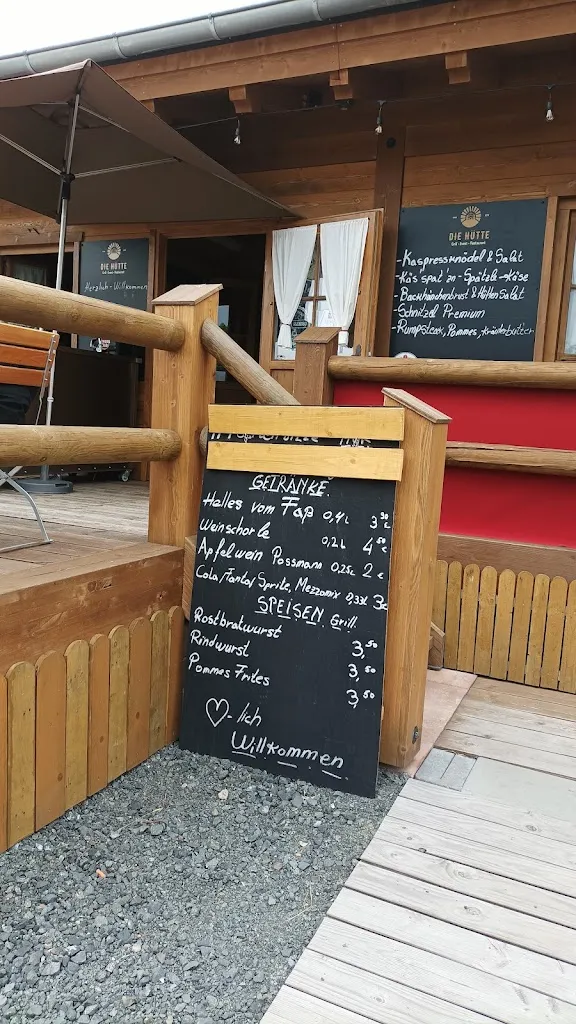 DIE HÜTTE
Herzlich-Willkommen
DIE HÜTTE
Grill · Event · Restaurant
-Kaspressknödel & Salat
-Käs'spatz'n-Spätzle-Käse
-Backhändlenbrust & HüttenSalat
-Schnitzel Premium
-Rumpsteak, Pommes, Kräuterbutter
GETRÄNKE
Helles vom Faß 0,4L 3,50 €
Weinschorle 0,2L 4,50 €
Apfelwein Possmann 0,25L 2 €
Cola, Fanta, Sprite, Mezzomix 0,33L 3€
SPEISEN Grill
Rostbratwurst 3,50
Rindwurst 3,50
Pommes Frites 3,50
♡-lich
Willkommen